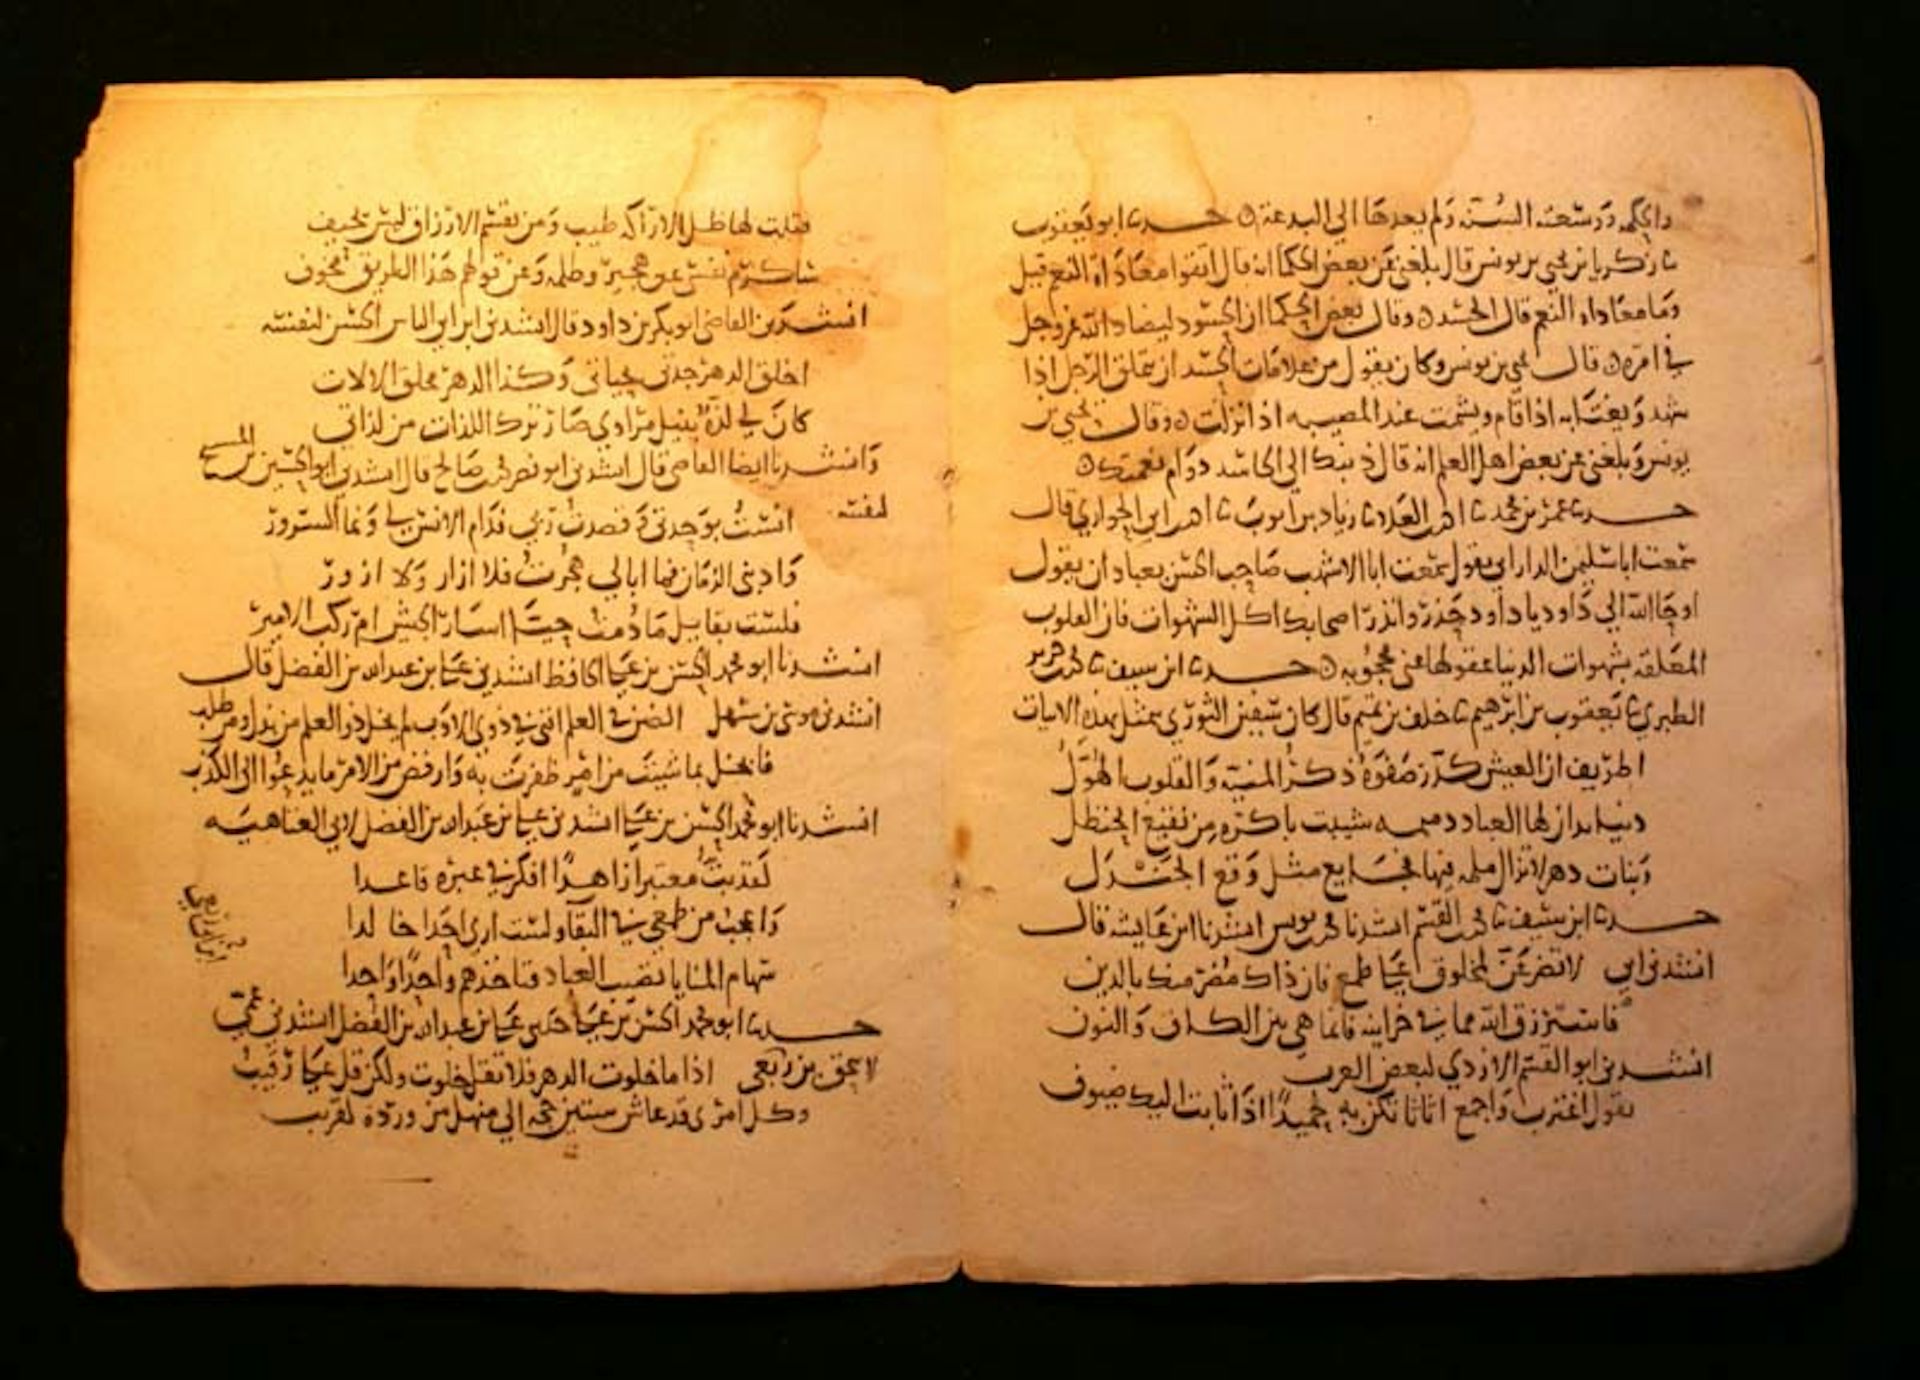 ووسعته السنة ولم يعدها الي البدعة حدثنا ابو يعقوب
زكريا بن يحيي بن يونس قال بلغني عن بعض الحكما انه قال اتقوا معاداه النعم قيل
وما معاداه النعم قال الحسد وقال بعض الحكما ان الحسود ليضاد الله عز وجل
في امره قال يحيي بن يونس وكان يقول من علامات الحسد ان يتملق الرجل اذا
شهد ويغتابه اذا قام ويشمت عند المصيبه اذا نزلت وقال يحيي بن
يونس وبلغني عن بعض اهل العلم انه قال ذنبك الي الحاسد دوام نعمتك
حدثنا عمر بن محمد نا العلا نا زياد بن ايوب نا احمد ابن الحواري قال
سمعت ابا سليمن الداراني يقول سمعت ابا الاشهب صاحب الحسن بعبادان يقول
اوحا الله الي داود يا داود حذر وانذر اصحابك اكل الشهوات فان القلوب
المعلقه بشهوات الدنيا عقولها عني محجوبه حدثنا ابن سيف نا محمد بن جرير
الطبري نا يعقوب بن ابرهيم نا خلف بن تميم قال كان سفين الثوري يتمثل بهذه الابيات
اطريف ان العيش كدر صفوه ذكر المنية والقلوب الهول
دنيا تداولها العباد دميمه شيبت باكره من نقيع الحنظل
وبنات دهر لا تزال ملمه فيها فجايع مثل وقع الجندل
حدثنا ابن سيف نا القسم انشدنا محمد بن يونس انشدنا ابن عايشه قال
انشدني ابي لا تضرعن لمخلوق علي طمع فان ذاك مضر منك بالدين
فاسترزق الله مما في خزاينه فانما هي بين الكاف والنون
انشدني ابو القسم الازدي لبعض العرب
يقول اغترب واجمع اثاثا تكن به حميدا اذا ثابت اليك ضيوف
فقلت لها ظل الاراكه طيب ومن يقسم الارزاق ليس يحيف
ساكرم نفسي عن وظلمه وعن قولهم هذا الطريق مخوف
انشدني القاضي ابو بكر بن داود قال انشدني ابن ابي الياس الحسن لنفسه
اخلق الدهر جدتي بحياتي وكذا الدهر مخلق الالات
كان لي لذه بنيل مرادي صار ترك اللذات من لذاتي
وانشدنا ايضا القاضي قال انشدني ابو نصر محمد بن صالح قال انشدني ابو الحسين
لنفسه انست بوحدتي فدام الانس لي ونما السرور
وادبني الزمان فما ابالي هجرت فلا ازار ولا ازور
فلست بقايل ما دمت حيا اسار الجيش ام ركب الامير
انشدنا ابو محمد الحسن بن علي الحافظ انشدني علي بن عبد الله بن الفضل قال
انشدني موسي بن سهل الضن في العلم في ذوي الادب لم يبخل ذو العلم من بذل ومن طلب
فابخل بما شيت من ظفرت به وارفض من الامر ما يدعوا الي الكذب
انشدنا ابو محمد الحسن بن علي انشدني علي بن عبد الله بن الفضل لابي العتاهيه
لقد بت معتبرا زاهدا افكر في عبره قاعدا
واعجب من طمعي في البقا ولست اري احدا خالدا
سهام المنايا تصيب العباد فتاخذهم واحدا واحدا
حدثنا ابو محمد الحسن بن علي حدثني علي بن عبد الله بن الفضل انشدني عمي
لاسحق بن ربعي اذا ما خلوت الدهر فلا تقل خلوت ولكن قل علي رقيب
وكل امري قد عاش ستين حجه الي منهل من ورده لقريب